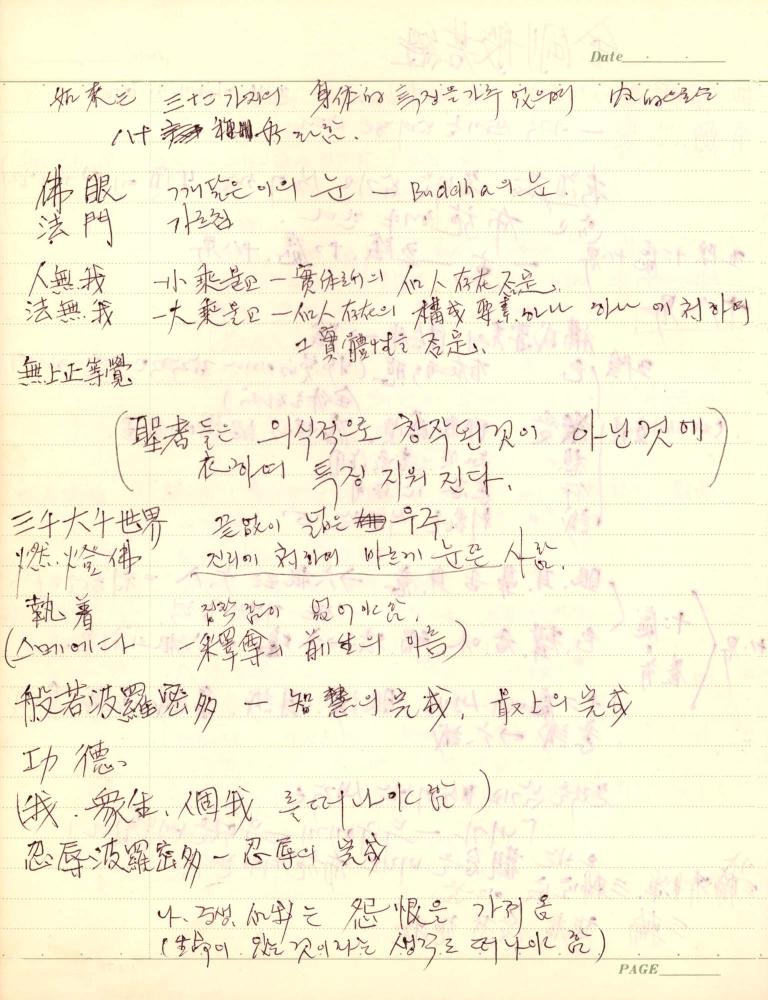 Date
如來는 三十二가지의 身体的 특징을 가추 었으며 内的으로는
八十 種好라함.
佛眼 깨닫은이의 눈 — Buddha의 눈.
法門 가르침
人無我 —小乘불교 — 實体로서의 個人存在 否定.
法無我 —大乘불교 — 個人存在의 構成要素 하나 하나에 취하여
그 實體性을 否定.
無上正等覺
(聖者들은 의식적으로 창작된것이 아닌것에
衣하여 특징 지워 진다.)
三千大千世界 끝없이 넓은 우주.
燃燈佛 진리에 취하여 바르게 눈뜬 사람.
執着 집착함이 없어야함.
(스메에다 —釋尊의 前生의 이름)
般若波羅密多 — 智慧의 完成, 最上의 完成
功德
(我. 衆生. 個我 를 떠나야함)
忍辱波羅密多 — 忍辱의 完成
나. 중생. 個我는 怨恨을 가져옴
(生命이 있는것이라는 생각도 떠나야 함)
PAGE